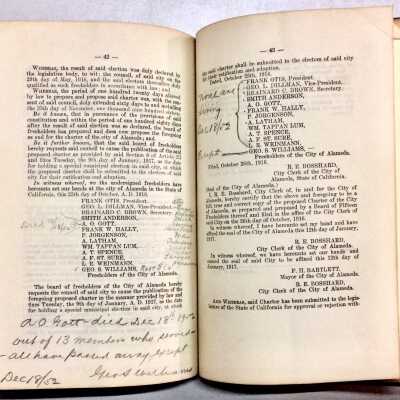 — 42 —
WHEREAS, the result of said election was duly declared by
the legislative body, to wit: the council, of said city on the
23rd day of May, 1916, and the said election through duly
qualified as such freeholders in accordance with law; and
WHEREAS, the period of one hundred twenty days allowed
by law to prepare and propose said charter was, with the con-
sent of said council, duly extended sixty days to and including
the 20th day of November, one thousand nine hundred sixteen,
Be it known, that in pursuance of the provisions of said
constitution and within the period of one hundred eighty days
after the result of said election was so declared, the board of
freeholders has prepared and does now propose the foregoing
as and for the charter of the city of Alameda; and
Be it further known, that the said board of freeholders
hereby requests said council to cause the publication of the
proposed charter as provided by said Section 8 of Article XI
and fixes Tuesday, the 9th day of January, 1917, as the date
for holding a special municipal election in said city, at which
the proposed charter shall be submitted to the electors of said
city for their ratification and adoption.
In witness whereof, we the undersigned freeholders have
hereunto set our hands at the city of Alameda in the State of
California, this 25th day of October, A. D. 1916.
FRANK OTIS, President.
GEO. L. DILLMAN, Vice-President.
BRAINARD C. BROWN, Secretary.
SMITH ANDERSON,
A. O. GOTT,
FRANK W. HALLY,
P. JORGENSON,
A. LATHAM,
WM. TAPPAN LUM,
A. T. SPENCE,
A. F. ST. SURE,
L. R. WEINMANN,
GEO. S. WILLIAMS,
Freeholders of the City of Alameda.
The board of freeholders of the City of Alameda hereby
requests the council of said city to cause the publication of the
foregoing proposed charter in the manner provided by law and
fixes Tuesday, the 9th day of January, A. D. 1917, as the date
for holding a special municipal election in said city, at
A.O. Gott died Dec 18th 1952
out of 13 members who served
all have passed away except
Dec 18/52 Geo S Williams
— 43 —
the said charter shall be submitted to the electors of said city
for their ratification and adoption.
Dated, October 25th, 1916.
FRANK OTIS, President.
GEO. L. DILLMAN, Vice-President.
BRAINARD C. BROWN, Secretary.
SMITH ANDERSON,
A. O. GOTT,
FRANK W. HALLY,
P. JORGENSON,
A. LATHAM,
WM. TAPPAN LUM,
A. T. SPENCE,
A. F. ST. SURE,
L. R. WEINMANN,
GEO. S. WILLIAMS,
Freeholders of the City of Alameda.
Dec 18/52
Except
October 26th, 1916.
R. E. BOSSHARD,
City Clerk of the City of
Alameda, State of California.
(Seal of the City of Alameda.)
I, R. E. Bosshard, City Clerk of, in and for the City of
Alameda, hereby certify that the above and foregoing to be a
true and correct copy of the proposed Charter of the City
of Alameda, as prepared and proposed by a Board of Fifteen
Freeholders thereof and filed in the office of the City Clerk of
said City on the 26th day of October, 1916.
In witness whereof, I have hereunto set my hand and have
affixed the seal of the City of Alameda this 12th day of January,
1917.
R. E. BOSSHARD,
City Clerk of the City of Alameda.
In witness whereof, we have hereunto set our hands and
caused the seal of said City to be affixed this 12th day of
January, 1917.
F. H. BARTLETT,
Mayor of the City of Alameda.
R. E. BOSSHARD,
City Clerk of the City of Alameda.
AND WHEREAS, said Charter has been submitted to the legis-
lature of the State of California for approval or rejection with-